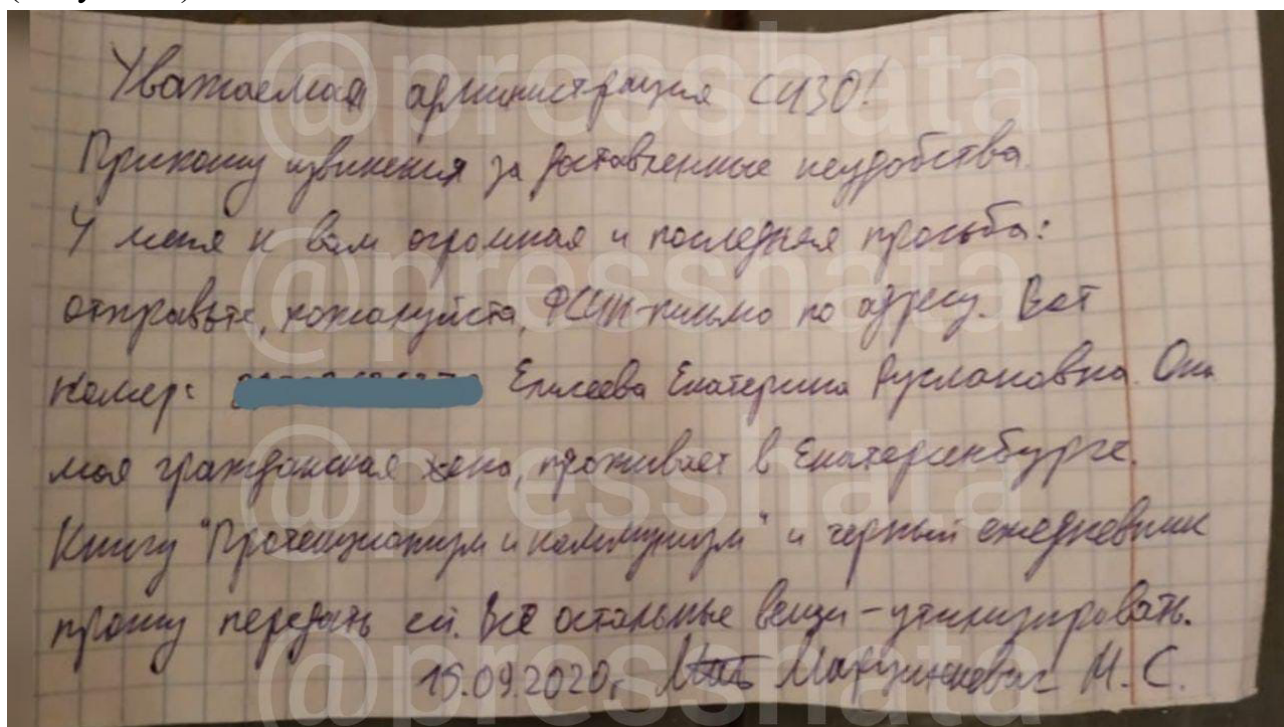 Уважаемая администрация СИЗО!
Приношу извинения за доставленные неудобства.
У меня к вам огромная и последняя просьба:
отправьте, пожалуйста, ФСИН-письмо по адресу. Вот
номер: Елисеева Екатерина Руслановна. Она
моя гражданская жена, проживает в Екатеринбурге.
Книгу "Протекционизм и коммунизм" и черный ежедневник
прошу передать ей. Всё остальные вещи - утилизировать.
15.09.2020г. Марцинкевич М.С.
@presshata
@presshata
@presshata
@presshata